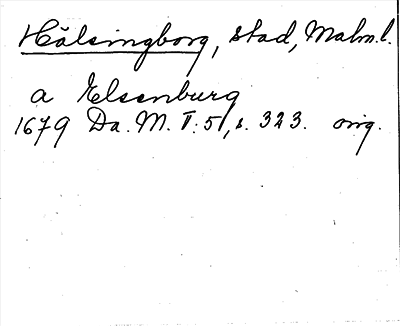 Hälsingborg, stad, Malm.l.
a Elsenburg
1679 Da. M. II:51, s. 323. orig.